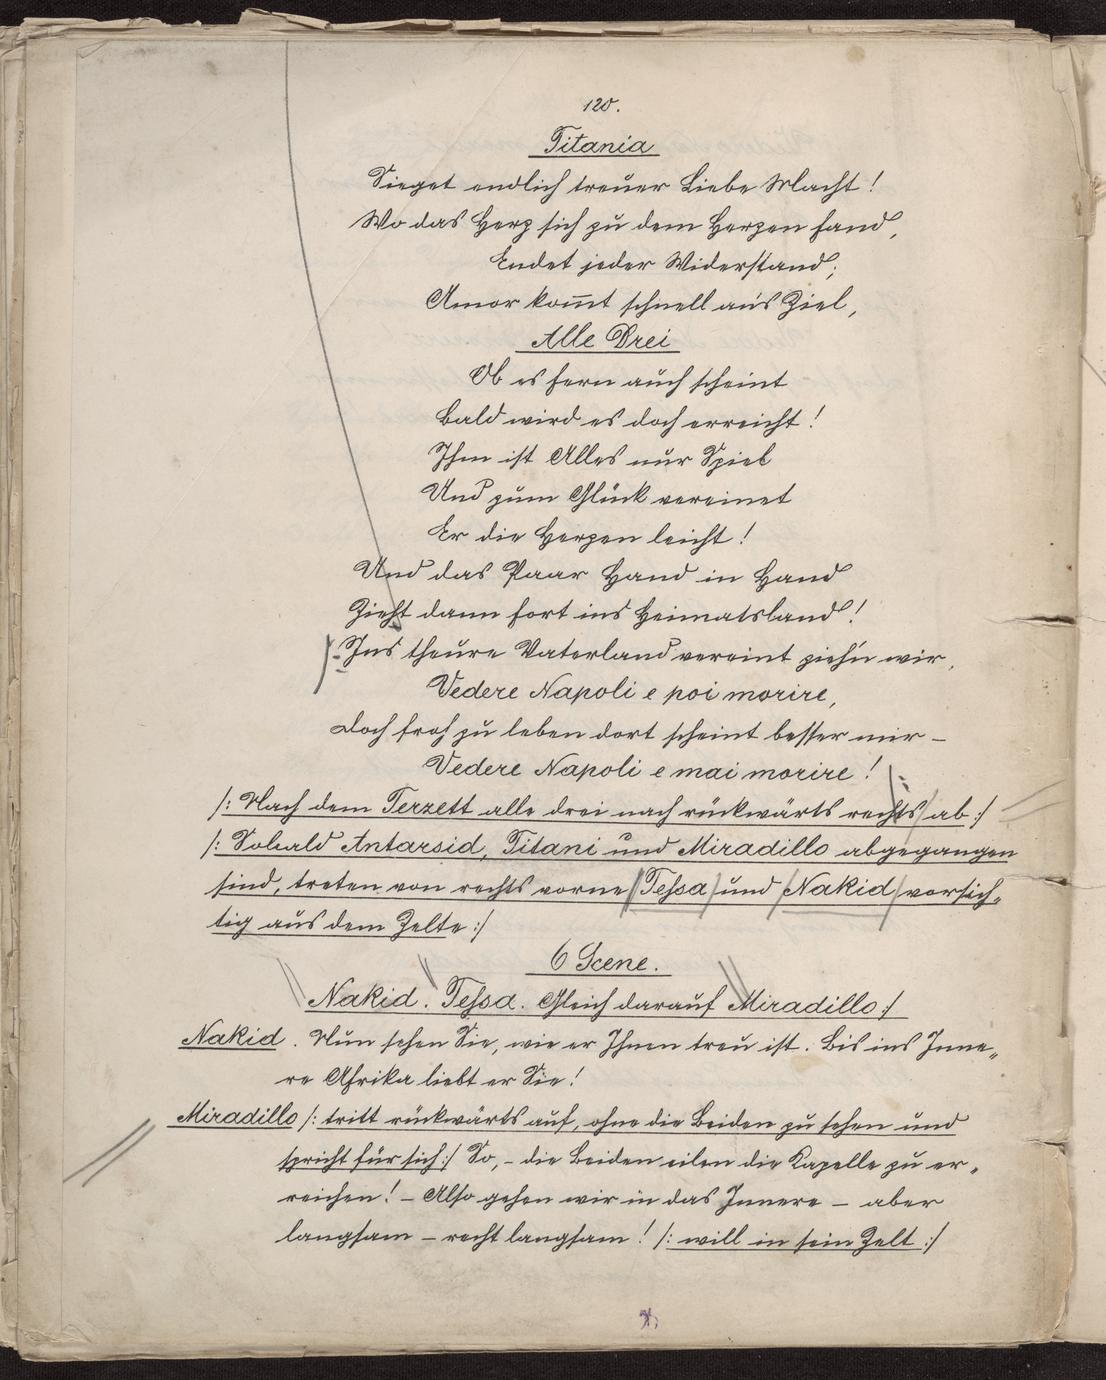 120.
Titania
Sieget endlich treuer Liebe Macht!
Wo das Herz sich zu dem Herzen fand,
Endet jeder Widerstand;
Amor kom̅t schnell an's Ziel,
Alle Drei
Ob es fern auch scheint
Bald wird es doch erreicht!
Ihm ist Alles nur Spiel
Und zum Glück vereinet
Er die Herzen leicht!
Und das Paar Hand in Hand
Zieht dann fort ins Heimatsland!
|: Ins theure Vaterland vereint zieh'n wir,
Vedere Napoli e poi morire,
Doch froh zu leben dort scheint besser mir –
Vedere Napoli e mai morire! :|
/: Nach dem Terzett alle drei nach rückwärts rechts ab :/
/: Sobald Antarsid, Titani und Miradillo abgegangen
sind, treten von rechts vorne Tessa und Nakid vorsich-
tig aus dem Zelte :/
6 Scene.
Nakid. Tessa. Gleich darauf Miradillo :/
Nakid. Nun sehen Sie, wie er Ihnen treu ist. Bis ins Inne-
re Afrika liebt er Sie!
Miradillo /: tritt rückwärts auf, ohne die Beiden zu sehen und
spricht für sich :/ So, – die Beiden eilen die Kapelle zu er-
reichen! – Also gehen wir in das Innere – aber
langsam – recht langsam! /: will in sein Zelt :/